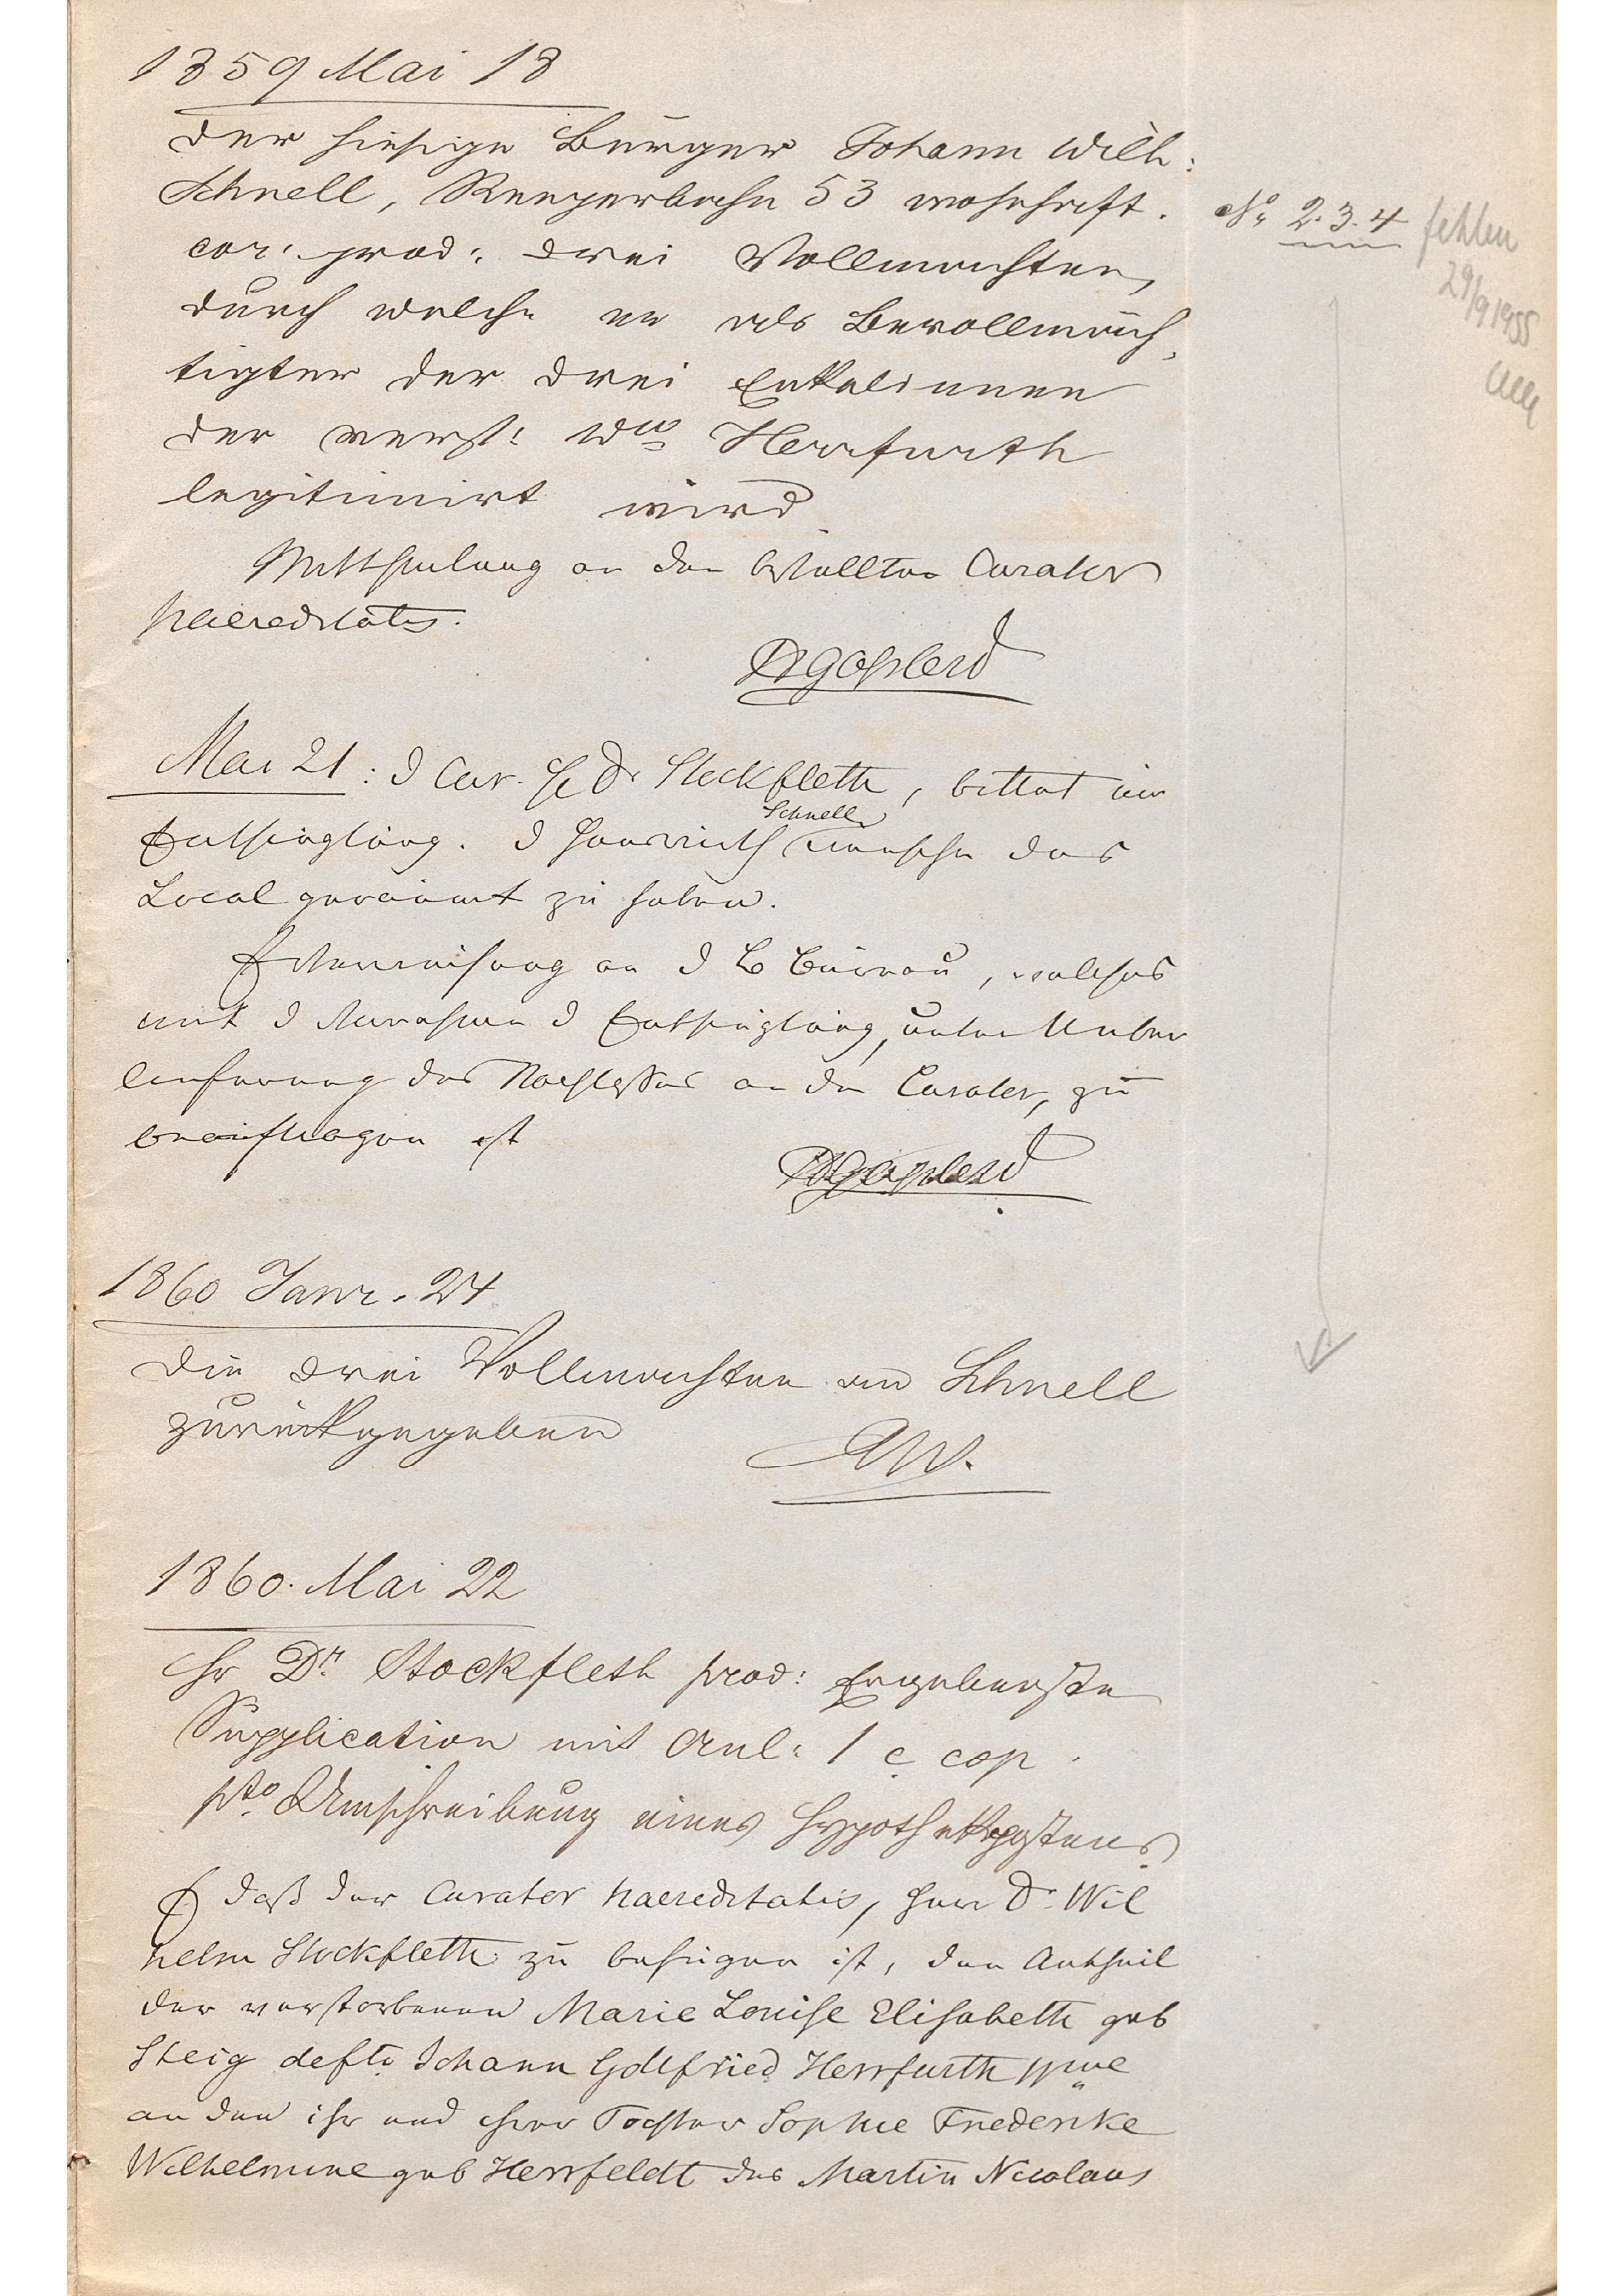 1859 Mai 18
Der hiesige Bürger Johann Wilh:
Schnell, Reeperbahn 53 wohnhaft.
cor: prod: drei Vollmachten,
durch welche er als Bevollmäch,
tigter der drei Enkelinnen
der verst: Wwe Herrfurth
legitimirt wird
Mittheilung an den bestellten Curator
haereditatis.
Mai 21: d Cur. H Dr Stockfleth, bittet um
Entsieglung. d Hauswirth Schnell wünsche das
Local geräumt zu haben.
Überweisung an d Büreau, welches
mit d Vornahme d Entsieglung, unter Ueber
lieferung des Nachlasses an den Curator, zu
beauftragen ist
1860 Janr. 24
Die drei Vollmachten an Schnell
zurückgegeben
AW.
1860. Mai 22
Hr Dr. Stockfleth prod: Ergebenste
Supplication mit Anl: 1 c cop.
pto Umschreibung eines Hypothekpostens
daß der Curator haereditatis, Herr Dr. Wil
helm Stockfleth zu befugen ist, den Antheil
der verstorbenen Marie Louise Elisabeth geb
Steig defti Johann Gottfried Herrfurth Wwe
an den ihr und ihrer Tochter Sophie Friederike
Wilhelmine geb Herrfeldt des Martin Nicolaus
No 2. 3. 4 fehlen
29/9 1955